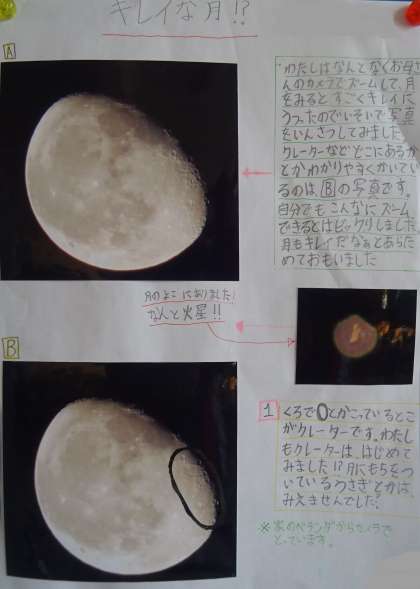 キレイな月!?
A
・わたしはなんとなくお母さ
んのカメラでズームして、月
をみると、すごくキレイに
うつったのでいそいで写真
をいんさつしてみました。
クレーターなどどこにあるか
とかわかりやすくかいてい
るのは、Bの写真です。
自分でもこんなにズーム
できるとはビックリしました。
月もキレイだなぁとあらた
めておもいました
月のよこにありました!
なんと火星!!
B
1
くろで0とかこっているとこ
がクレーターです。わたし
もクレーターは、はじめて
みました!?月にもちを
ついているうさぎとかは
みえませんでした。
※家のベランダからカメラで
とっています。